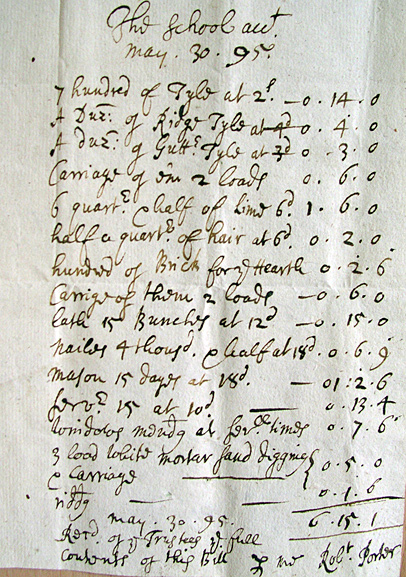 The School acct.
may. 30. 95.
7 hundred of Tyle at 2s. — 0. 14. 0
A Duz: of Ridge Tyle at 4d 0. 4. 0
A duz: of Gutts Tyle at 3d 0. 3. 0
Carriage of em 2 loads 0. 6. 0
6 quartrs & half of Lime 6d. 1. 6. 0
half a quartr. of hair at 6d. 0. 2. 0
hundred of Brick for ye Hearth 0. 2. 6
Carrige of them 2 loads — 0. 6. 0
lath 15 Bunches at 12d — 0. 15. 0
Nailes 4 thousd. & half at 18d. 0. 6. 9
mason 15 dayes at 18d. — 01: 2. 6
servr. 15 at 10d. — 0. 13. 4
Windows mendg at sevll times 0. 7. 6
3 load White mortar sand digging } 0. 5. 0
& Carriage
— — 0. 1. 6
may. 30. 95. 6. 15. 1
Recd. of ye Trustees ye full
Contents of this Bill p me Robt Porter